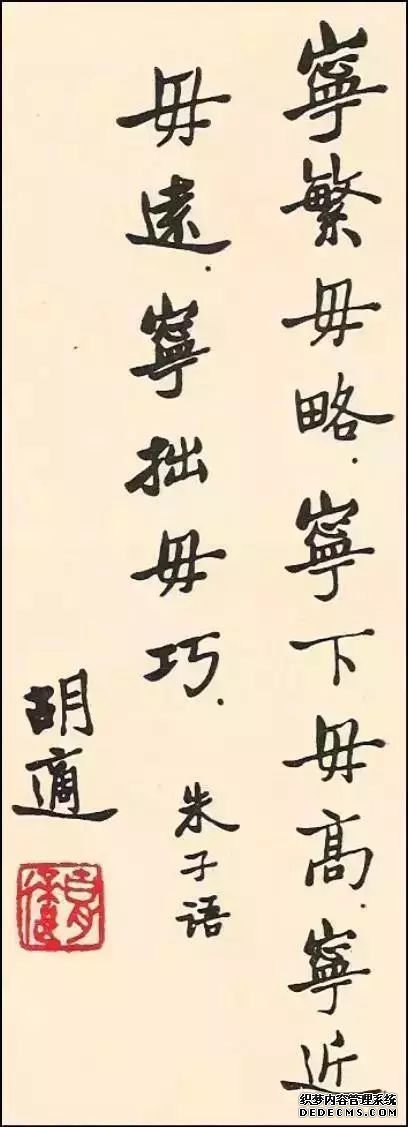 寧繁毋略.寧下毋高.寧近
毋遠.寧拙毋巧.
朱子语
胡適
织梦内容管理系统
DEDECMS.COM